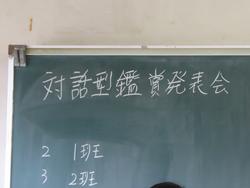 対話型鑑賞発表会
2 1班
3 2班